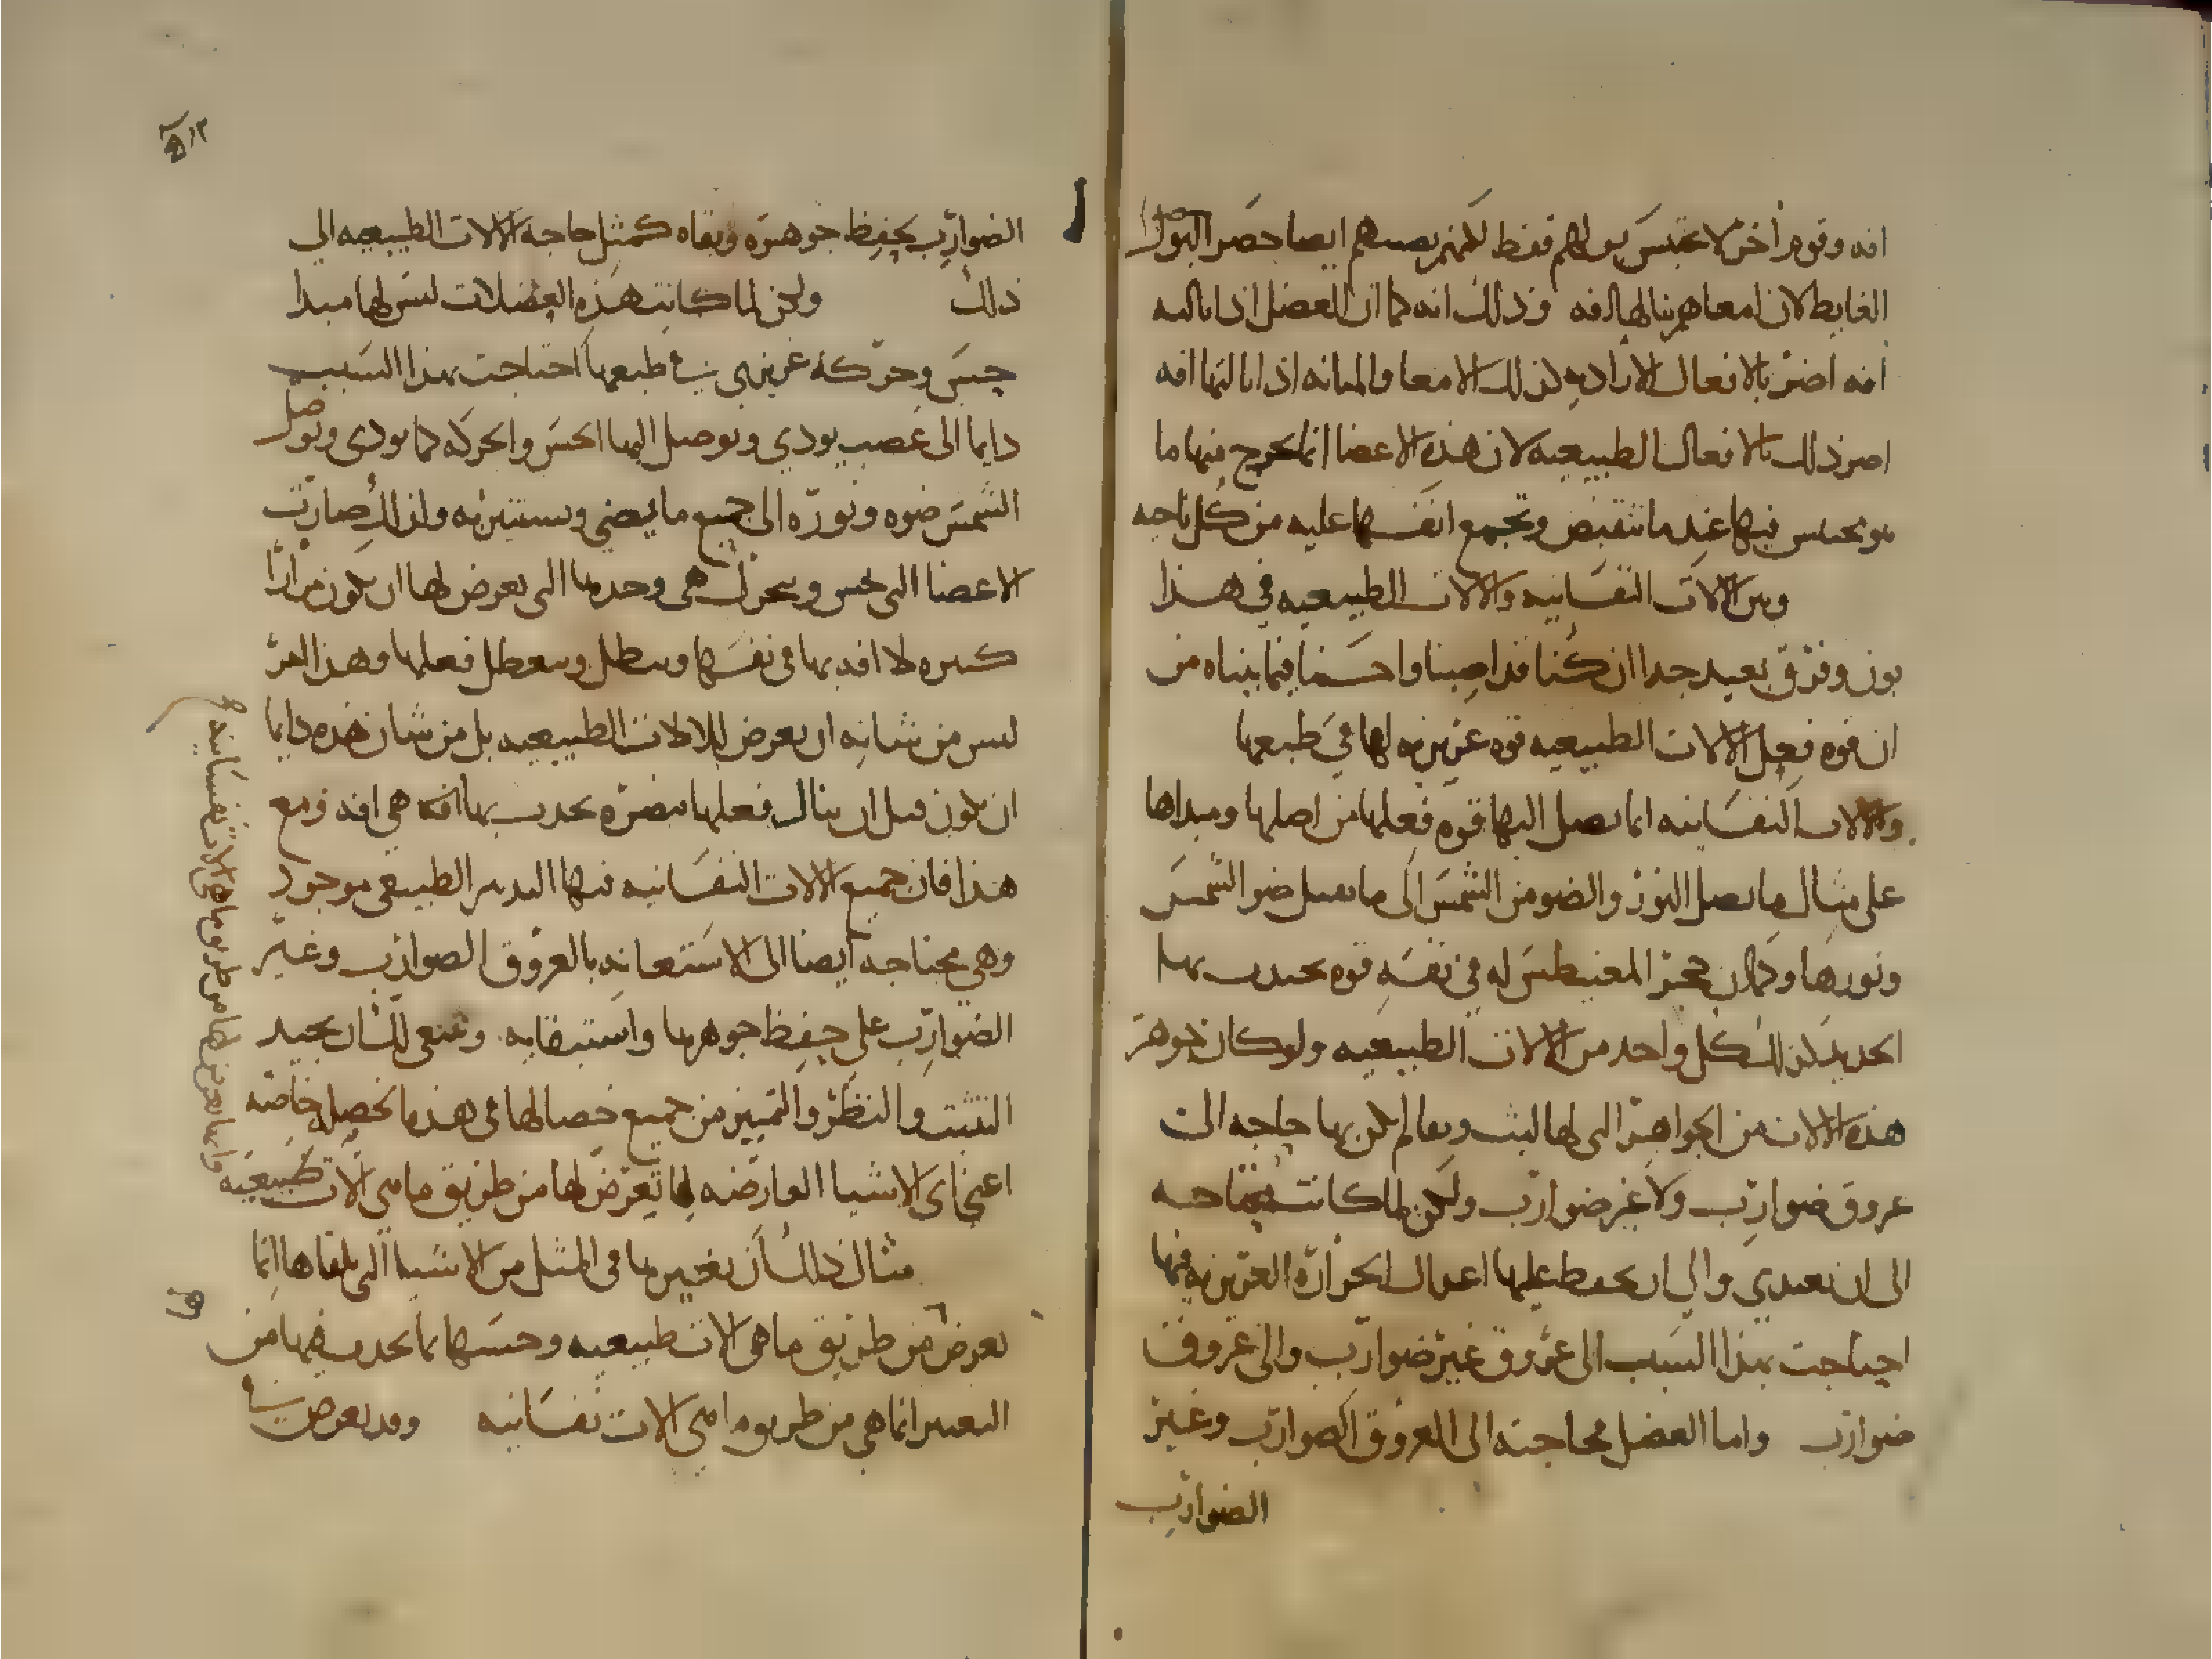 افه وقوم اخر لا يحتبس بولهم فقط لكنهم يصيبهم ايضا حصر البول
الغايط لان امعاهم ينالها افه وذلك انه كما ان العضل اذا نالته
افه اضر بالافعال الاراديه كذلك الامعا والمثانه اذا نالتها افه
اضر ذلك بالافعال الطبيعيه لان هذه الاعضا انما يخرج منها ما
هو محتبس فيها عند ما تنقبض وتجمع انفسها عليه من كل ناحيه
وبين الالات النفسانيه والالات الطبيعيه في هذا
بون وفرق بعيد جدا ان كنا قد اصبنا واحسنا فيما بيناه من
ان قوه فعل الالات الطبيعيه قوه غريزيه لها في طبعها
والالات النفسانيه انما يصل اليها قوه فعلها من اصلها ومبداها
على مثال ما يصل النور والضو من الشمس الى ما يقبل ضو الشمس
ونورها وكما ان حجر المغنيطس له في نفسه قوه يجذب بها
الحديد كذلك كل واحد من الالات الطبيعيه ولو كان جوهر
هذه الالات من الجواهر التي لها لبث وبقا لم يكن بها حاجه الى
عروق ضوارب ولا غير ضوارب ولكن لما كانت محتاجه
الى ان تغتدي والى ان يحفظ عليها اعتدال الحراره الغريزيه فيها
احتاجت بهذا السبب الى عروق غير ضوارب والى عروق
ضوارب واما العضل فحاجته الى العروق الضوارب وغير
الضوارب
الضوارب بحفظ جوهره وبقاه كمثل حاجه الالات الطبيعيه الى
ذلك ولكن لما كانت هذه العضلات ليس لها مبدا
حس وحركه غريزي في طبعها احتاجت بهذا السبب
دايما الى عصب يودي ويوصل اليها الحس والحركه كما يودى ويوصل
الشمس ضوه ونوره الى جميع ما يضي ويستنير به ولذلك صارت
الاعضا التي تحس وتتحرك هى وحدها التى يعرض لها ان يكون مرارا
كثيره لا افه بها في نفسها ويبطل ويتعطل فعلها وهذا امر
ليس من شانه ان يعرض للالات الطبيعيه بل من شان هذه دايما
ان يكون قبل ان ينال فعلها مضره يحدث بها افه هي افه ومع
هذا فان جميع الالات النفسانيه فيها التدبير الطبيعي موجود
وهي محتاجه ايضا الى الاستعانه بالعروق الضوارب وغير
الضوارب على حفظ جوهرها واستبقايه وينبغي لك ان تجيد
التثبت والنظر والتمييز من جميع خصالها في هذه ما تخصه خاصه
اعني اي الاشيا العارضه لها تعرض لها من طريق ما هي الات طبيعيه
وايها يعرض لها من طريق ما هي الات نفسانيه
مثال ذلك ان تغييرها في المثل من الاشيا التى تلقاها انما
يعرض من طريق ما هي الات طبيعيه وحسها بما يحدث فيها من
التغيير انما هي من طريق ما هي الات نفسانيه وقد يعرض